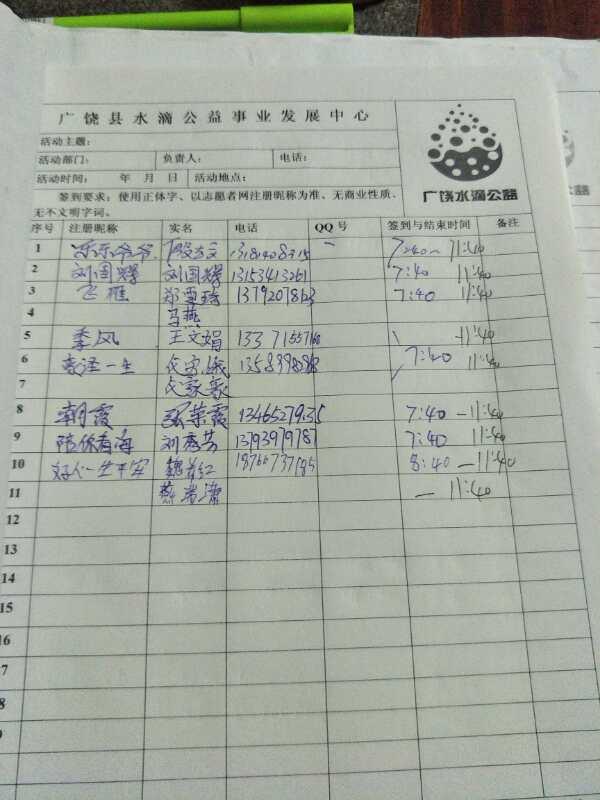 广饶县水滴公益事业发展中心
活动主题：
活动部门： 负责人： 电话：
活动时间： 年 月 日 活动地点：
广饶水滴公益
签到要求：使用正体字、以志愿者网注册昵称为准、无商业性质、
无不文明字词。
序号 注册昵称 实名 电话 QQ号 签到与结束时间 备注
1 乐乐爷爷 7:40~11:40
2 刘国辉 刘国辉 13153413261 7:40 11:40
3 飞雁 郑雪琦 7:40 11:40
4 马燕
5 季风 王文娟 11:40
6 一生 7:40 11:40
7
8 朝霞 张荣霞 13465279135 7:40-11:40
9 陪你看海 刘秀芳 13793979787 7:40 11:40
10 好人一生平安 魏首红 8:40-11:40
11 燕 - 11:40
12
13
14
15
16
7
8
9